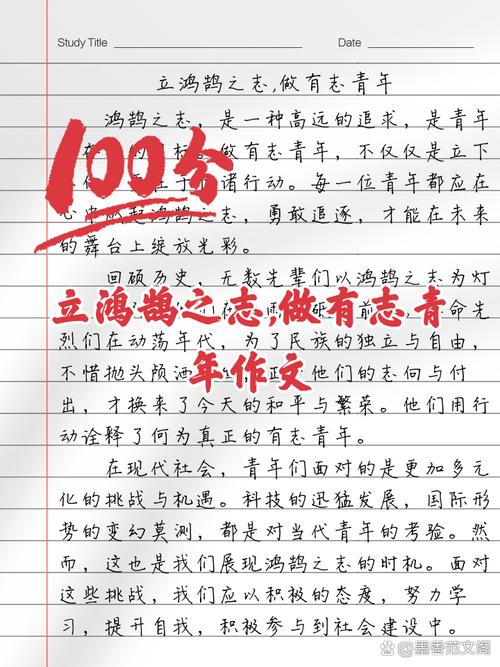 Study Title Date
立鸿鹄之志,做有志青年
鸿鹄之志，是一种高远的追求，是青年
做有志青年，不仅仅是立下
诸行动。每一位青年都应在
鸿鹄之志，勇敢追逐，才能在未来
的舞台上绽放光彩。
100分
回顾历史，无数先辈们以鸿鹄之志为灯
立鸿鹄之志,做有志青
年作文
烈们在动荡年代，为了民族的独立与自由，
不惜抛头颅洒 他们的志向与付
出，才换来了今天的和平与繁荣。他们用行
动诠释了何为真正的有志青年。
在现代社会，青年们面对的是更加多元
化的挑战与机遇。科技的迅猛发展，国际形
势的变幻莫测，都是对当代青年的考验。然
而，这也是我们展现鸿鹄之志的时机。面对
这些挑战，我们应以积极的态度，努力学
习，提升自我，积极参与到社会建设中。
@墨香范文阁